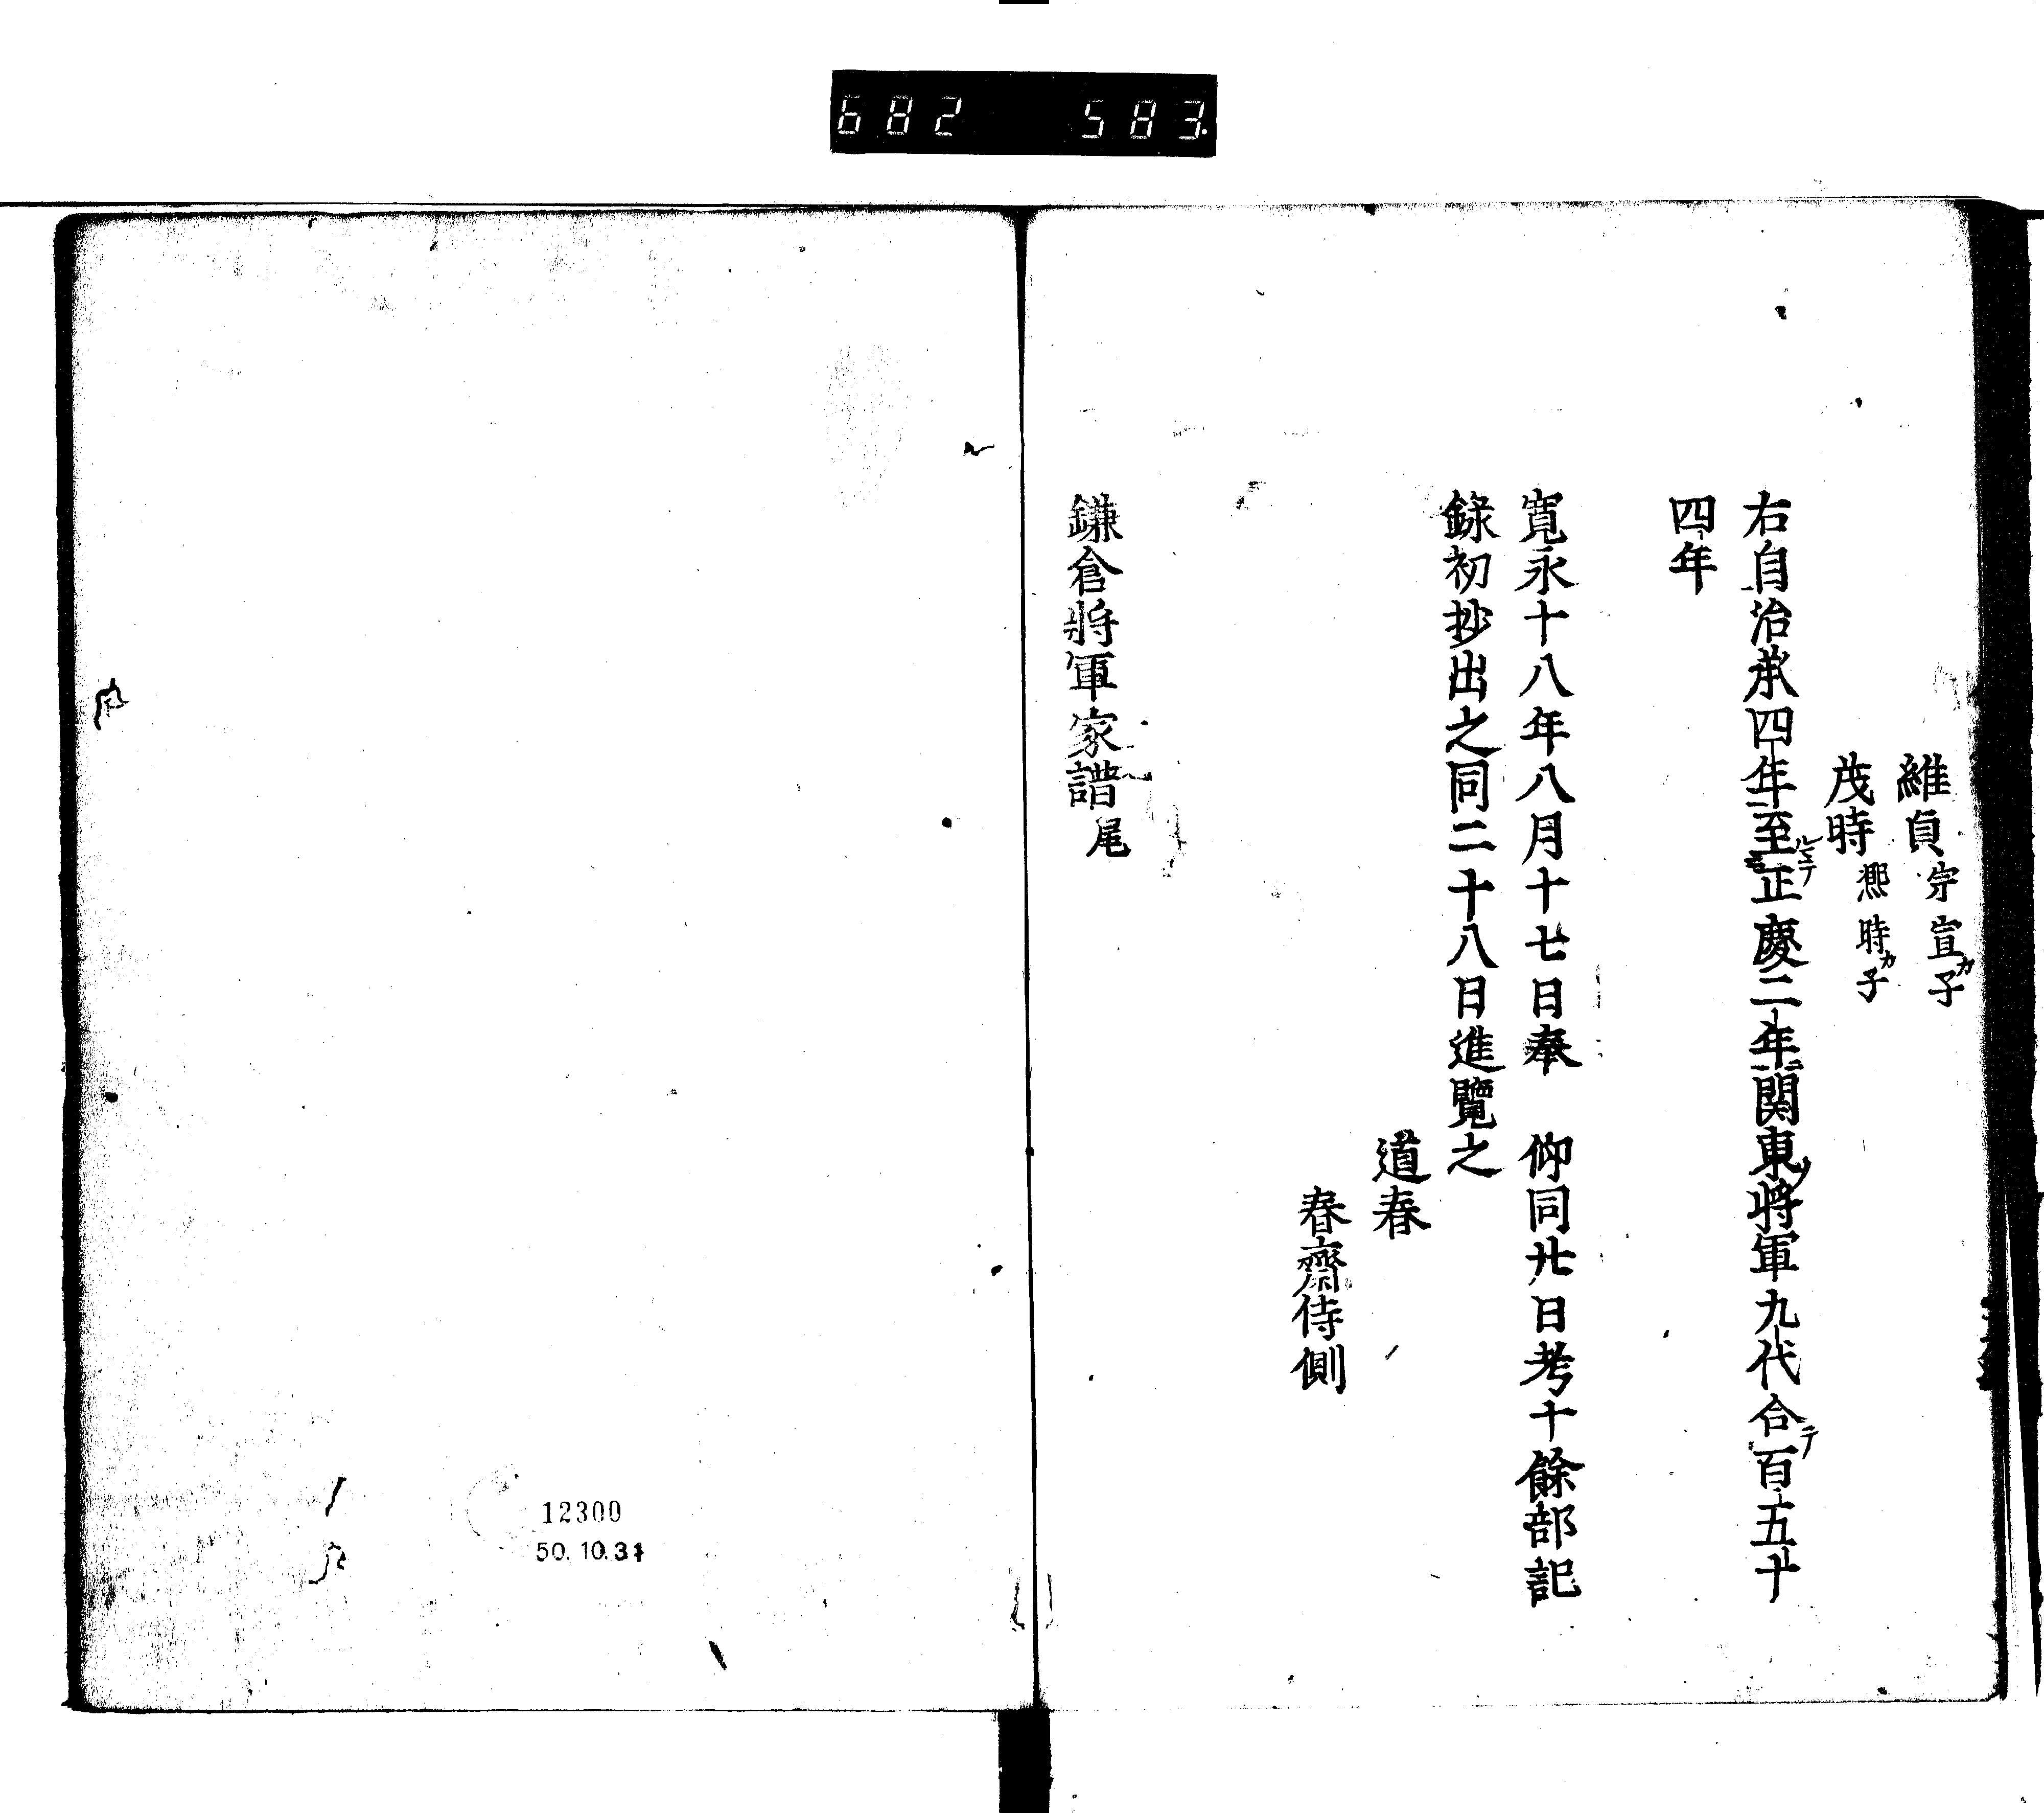 682 583.
維貞 宗宣カ子
茂時 凞時カ子
右自治承四年至ルマテ正慶二年ニ関東ノ將軍九代合テ百五十
四年
寛永十八年八月十七日奉　仰同廿日考十餘部記
錄初抄出之同二十八日進覽之
道春
春齋侍側
鎌倉將軍家譜尾
12300
50.10.31